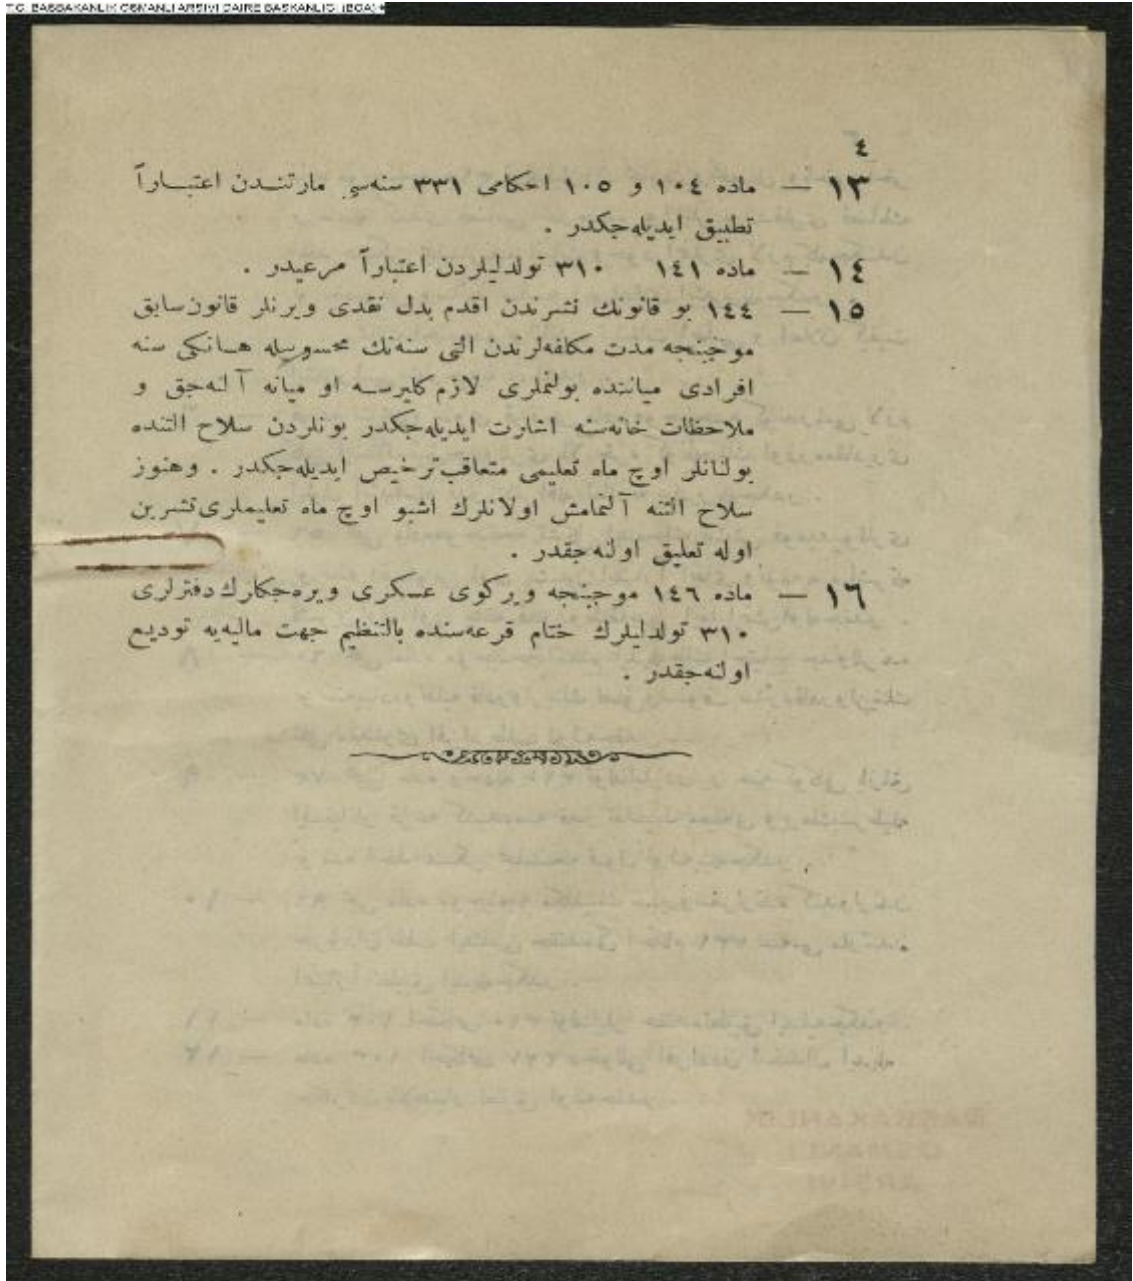 T.C. BAŞBAKANLIK OSMANLI ARŞİVİ DAİRE BAŞKANLIĞI (BOA)
٤
١٣ — ماده ١٠٤ و ١٠٥ احكامی ٣٣١ سنه‌سی مارتندن اعتباراً
تطبیق ایدیله‌جكدر .
١٤ — ماده ١٤١ ٣١٠ تولدلیلردن اعتباراً مرعیدر .
١٥ — ١٤٤ بو قانونك نشرندن اقدم بدل نقدی ویرنلر قانون سابق
موجبنجه مدت مكلفه‌لرندن التی سنه‌نك محسوبیله هانكی سنه
افرادی میاننده بولنملری لازم كلیرسه او میانه آلنه‌جق و
ملاحظات خانه‌سنه اشارت ایدیله‌جكدر بونلردن سلاح التنده
بولنانلر اوچ ماه تعلیمی متعاقب ترخیص ایدیله‌جكدر . وهنوز
سلاح التنه آلنمامش اولانلرك اشبو اوچ ماه تعلیملری تشرین
اوله تعلیق اولنه‌جقدر .
١٦ — ماده ١٤٦ موجبنجه ویركوی عسكری ویره‌جكلرك دفترلری
٣١٠ تولدلیلرك ختام قرعه‌سنده بالتنظیم جهت مالیه‌یه تودیع
اولنه‌جقدر .